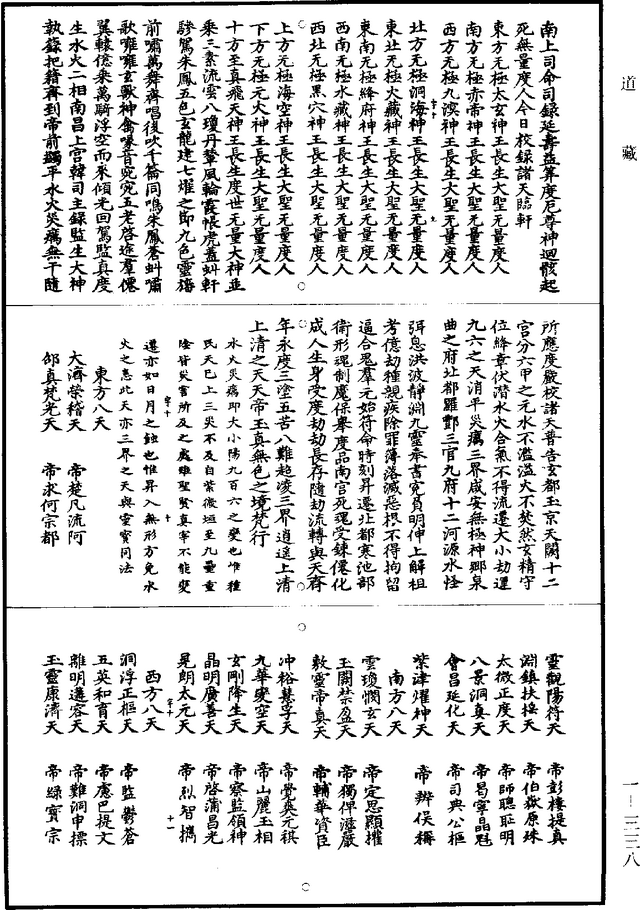 道藏
南上司命司錄延壽益筭度厄尊神迴骸起
死無量度人今日校錄諸天臨軒
東方无極太玄神王長生大聖无量度人
南方无極赤帝神王長生大聖无量度人
西方无極九溟神王長生大聖无量度人
北方无極洞海神王長生大聖无量度人
東北无極火藏神王長生大聖无量度人
東南无極絳府神王長生大聖无量度人
西南无極水藏神王長生大聖无量度人
西北无極黑穴神王長生大聖无量度人
上方无極海空神王長生大聖无量度人
下方无極元火神王長生大聖无量度人
十方至真飛天神王長生度世无量大神並
乘三素流雲八瓊丹輦風輪霞帳虎蓋虯軒
驂駕朱鳳五色玄龍建七燿之節九色靈旛
前嘯萬舞齊唱後吹千籥同鳴朱鳳蒼虯嘯
歌嗈嗈玄獸神禽啄音窕窕五老啓途羣僊
翼轅億乘萬騎浮空而來傾光回駕監真度
生水火二相南昌上宮韓司主錄監生大神
執籙把籍齊到帝前蠲平水火災癘無干隨
所應度嚴校諸天普告玄都玉京天闕十二
宮分六甲之元水不濫溢火不焚然玄精守
位絳章伏潛水火合氣不得流還大小劫運
九六之天消平災癘三界咸安無極神鄉泉
曲之府北都羅酆三官九府十二河源水怪
弭息洪波靜淵九靈奉書寃負明伸上解祖
考億劫種親疾除罪簿落滅惡根不得拘留
逼合鬼羣元始符命時刻昇遷北都寒池部
衛形魂制魔保舉度品南宮死魂受鍊僊化
成人生身受度劫劫長存隨劫流轉與天齊
年永度三塗五苦八難超凌三界逍遥上清
上清之天天帝玉真無色之境梵行
水火災癘即大小陽九百六之變也惟種
民天已上三災不及自紫微垣至九量重
陰皆災害所及之處雖聖賢真宰不能變
遷亦如日月之蝕也惟昇入無形方免水
火之患此天亦三界之天與靈寶同法
東方八天
大濟榮稽天 帝楚凡流阿
郃真梵光天 帝求何宗都
靈觀陽符天 帝彭樓提真
淵鎮扶摇天 帝伯嶽原殊
太微正度天 帝師聰耻明
八景洞真天 帝曷寧晶魁
會昌延化天 帝司典公樞
紫津燿神天 帝辨俁稱
南方八天
雲瓊憫玄天 帝定思顯攉
玉關禁盈天 帝獨俾滋嚴
敷靈帝真天 帝輔華資臣
冲裕慧孚天 帝覺奐元祺
九華變空天 帝山麗玉相
玄剛降生天 帝察監領神
晶明廣善天 帝啓蒲昌光
晃朗太元天 帝烈智攜
西方八天
洞浮正樞天 帝監鬱蒼
五英和育天 帝應巴提文
離明遵容天 帝難洞申摽
玉靈康濟天 帝綠寶宗
一—三三八